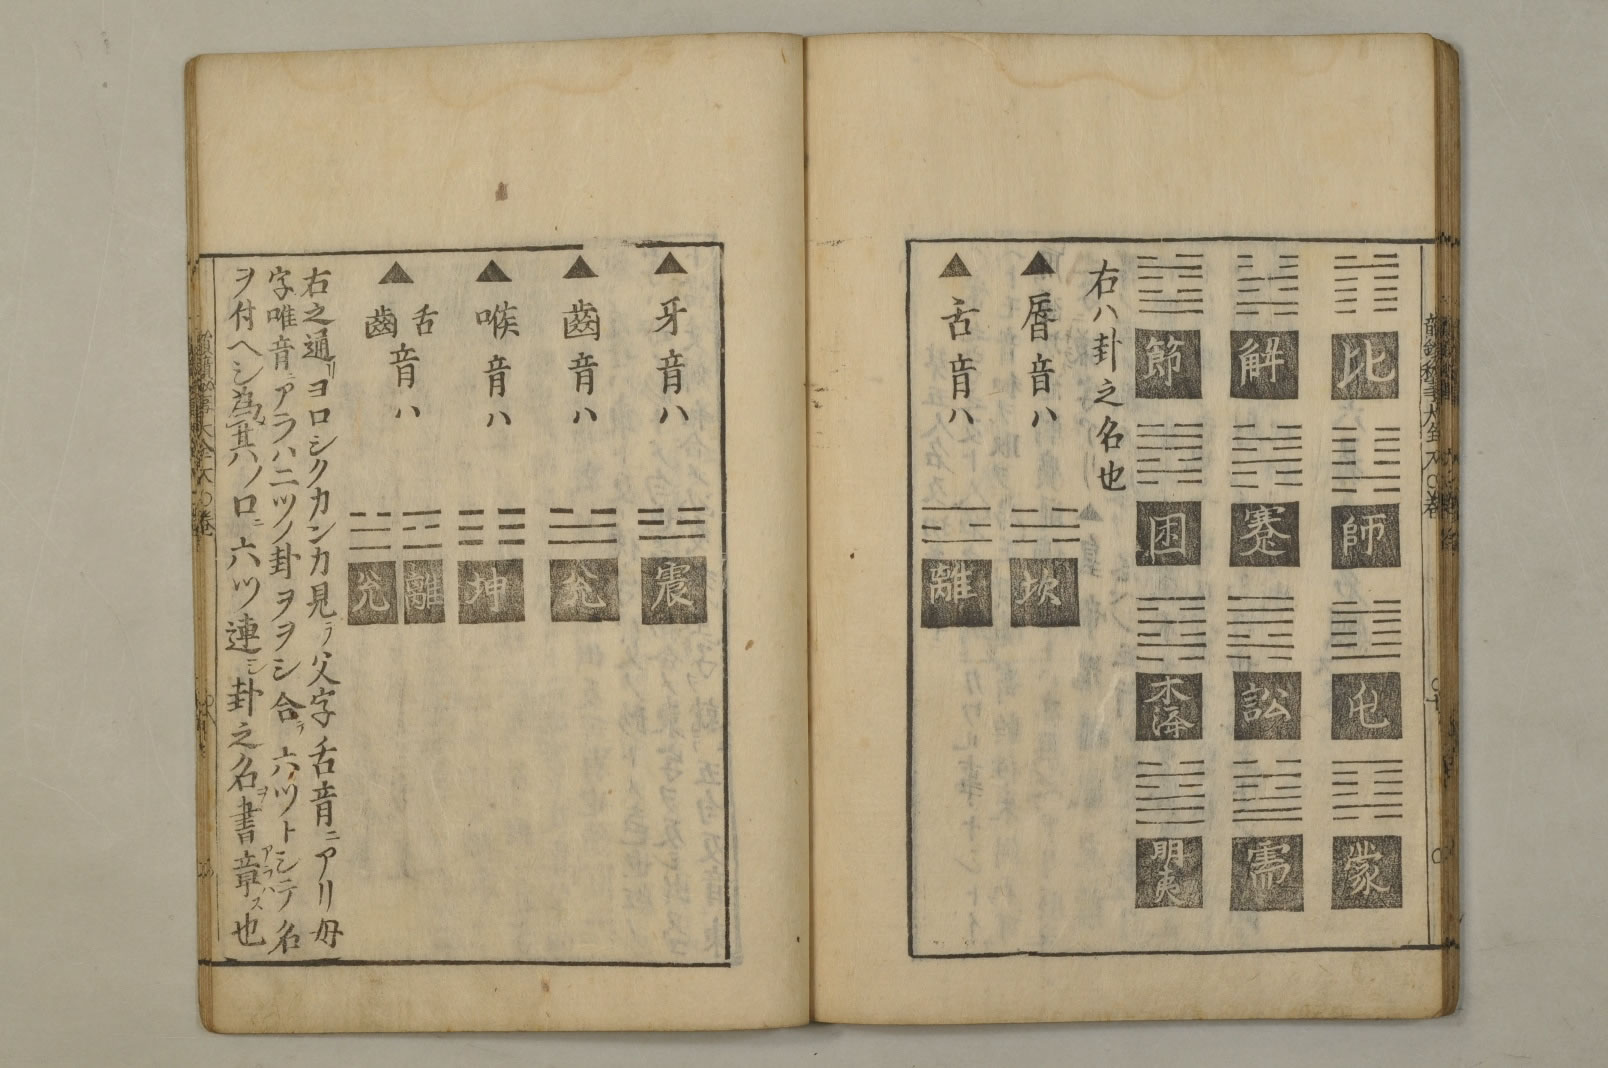 比
師
屯
蒙
解
蹇
訟
需
節
困
未済
明夷
右ハ卦之名也
▲唇音ハ 坎
▲舌音ハ 離
▲牙音ハ 震
▲齒音ハ 兊
▲喉音ハ 坤
▲舌齒音ハ 離 兊
右之通リヨロシクカンカ見ヲ父字舌音ニアリ母
字唯音ニアラハ二ツノ卦ヲヲシ合ラ六ツトシテ名
ヲ付ヘシ為其ハノロニ六ツ連ニ卦之名ヲ書章アラハス也